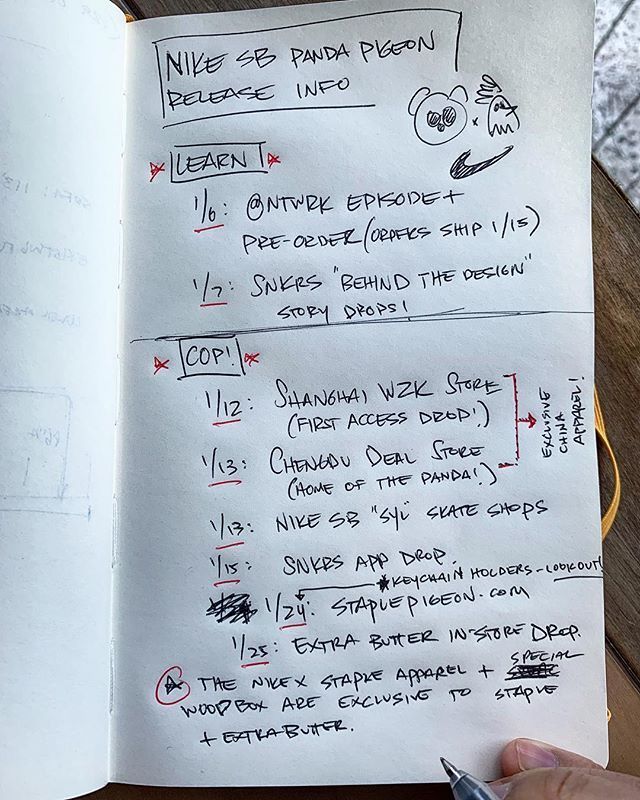 NIKE SB PANDA PIGEON
RELEASE INFO
LEARN!
1/6: @NTWRK EPISODE +
PRE-ORDER (ORDERS SHIP 1/15)
1/7: SNKRS "BEHIND THE DESIGN"
STORY DROPS!
COP!
1/12: SHANGHAI WZK STORE
(FIRST ACCESS DROP!)
1/13: CHENGDU DEAL STORE
(HOME OF THE PANDA!)
EXCLUSIVE
CHINA
APPAREL!
1/13: NIKE SB "SYL" SKATE SHOPS
1/15: SNKRS APP DROP.
*KEYCHAIN HOLDERS - LOOKOUT!
1/24: STAPLEPIGEON.COM
1/25: EXTRA BUTTER IN-STORE DROP.
THE NIKE X STAPLE APPAREL + SPECIAL
WOOD BOX ARE EXCLUSIVE TO STAPLE
+ EXTRA BUTTER.